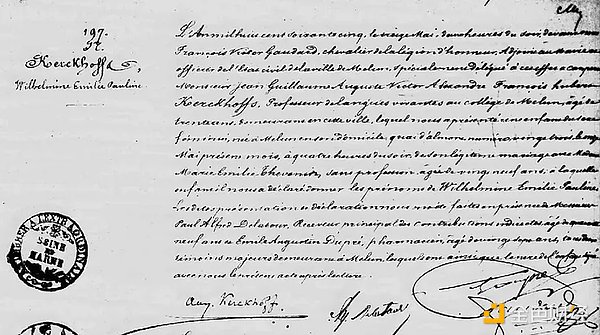 197.
Kerckhoffs,
Wilhelmine Emilie Pauline.
L'An mil huit cent soixante cinq, le treize Mai, deux heures du soir, devant nous
François Victor Gaudard, chevalier de la légion d'honneur, Adjoint au maire
officier de l'état civil de la ville de Melun, spécialement délégué à cet effet a comparu
Monsieur Jean Guillaume Auguste Victor Alexandre François hubert
Kerckhoffs, Professeur de langues vivantes au collège de Melun, âgé de
trente ans, demeurant en cette ville, lequel nous a présenté un enfant du sexe
féminin, né à Melun en son domicile, quai d'almont, numéro vingt trois, le onze
Mai présent mois, à quatre heures du soir, de son légitime mariage avec
Marie Emilie Chevance, sans profession, âgée de vingt neuf ans, à laquelle
enfant il nous a déclaré donner les prénoms de Wilhelmine Emilie Pauline.
Lesdites présentation et déclaration nous ont été faites en présence de Messieurs
Paul Alfred Delacour, Receveur principal des contributions indirectes, âgé de
neuf ans et Emile Augustin Dupré, pharmacien, âgé de ans,
témoins majeurs demeurant à Melun, lesquels ont ainsi que le
avec nous le présent acte après lecture.
Aug. Kerckhoffs
TIMBRE A L'EXTRAORDINAIRE
SEINE
ET
MARNE
金色财经